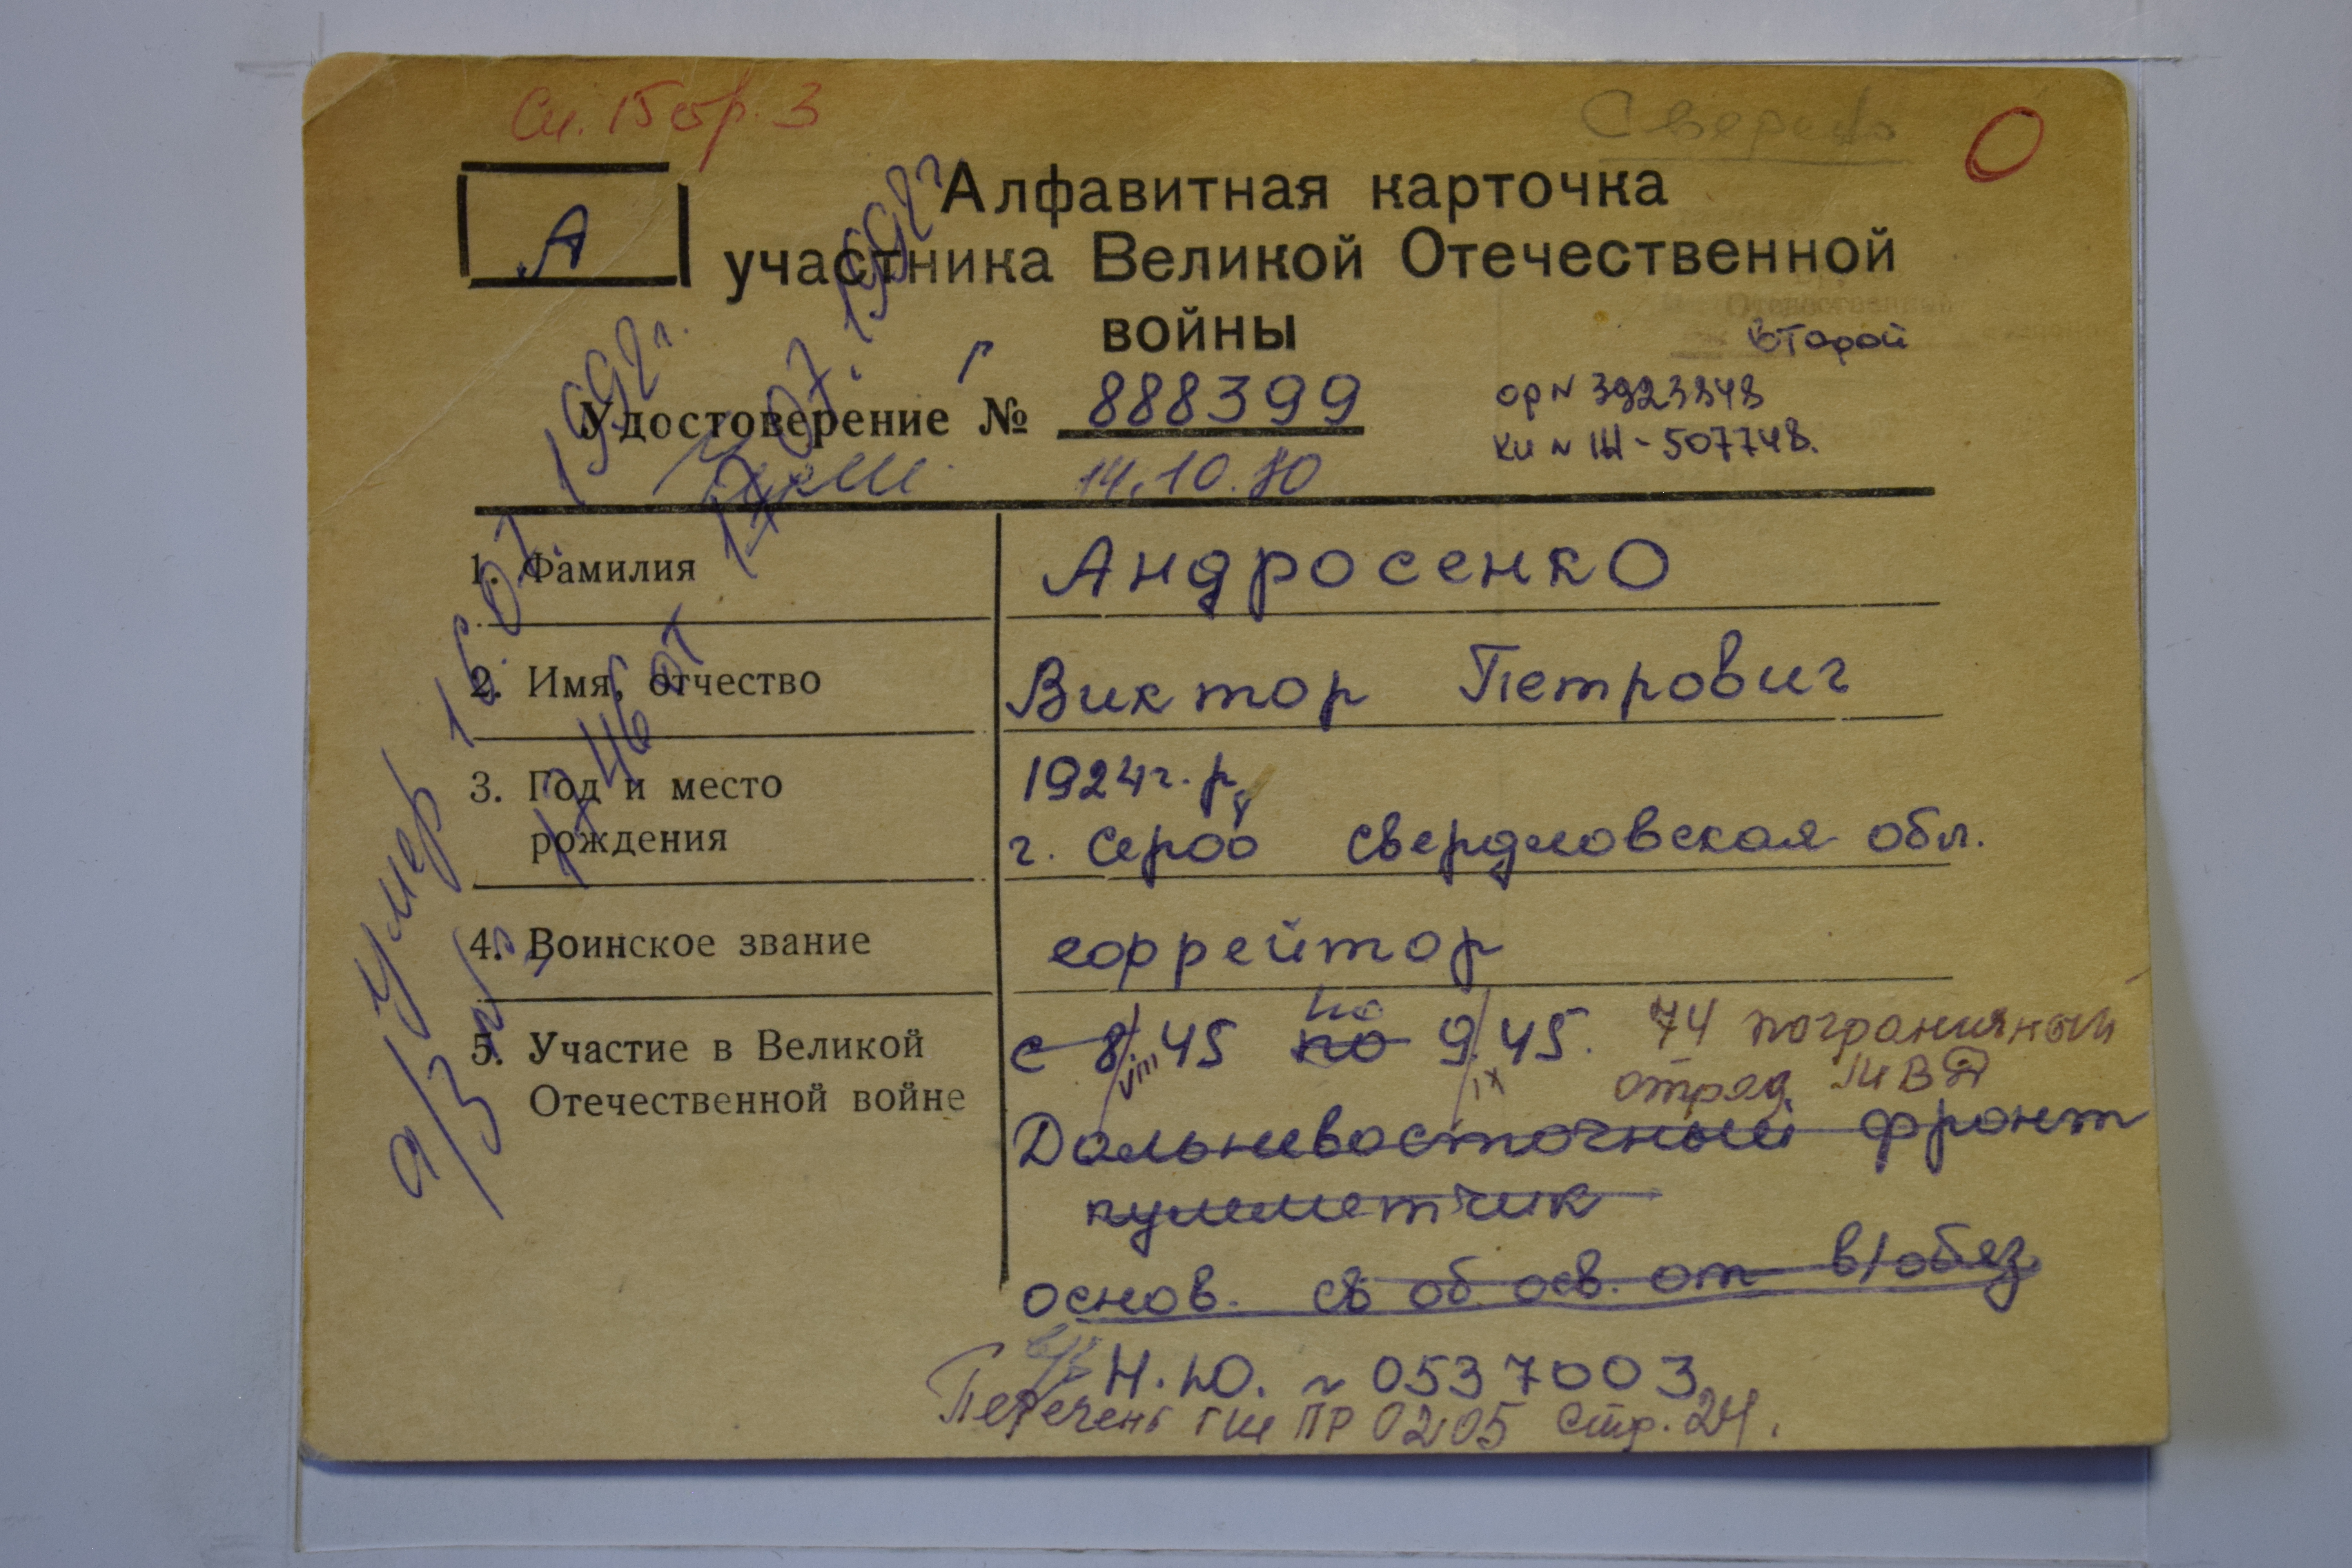 Сп. 15 стр. 3
А
Алфавитная карточка
участника Великой Отечественной
войны
второй
Удостоверение № Г 888399
ор № 3923848
14.10.80
1. Фамилия Андросенко
2. Имя, отчество Виктор Петрович
3. Год и место рождения 1924 г. р.
г. Серов Свердловская обл.
4. Воинское звание ефрейтор
5. Участие в Великой Отечественной войне
с 8.45 по 9.45. 74 пограничный
отряд МВД
VIII IX
Дальневосточный фронт
пулеметчик
основ. св об осв. от в/обяз
в/б Н.Ю. № 0537003
Перечень ГШ ПР 0205 стр. 24.
а/з № 1746 от 17.07.1992г
Умер 16.07.1992г.